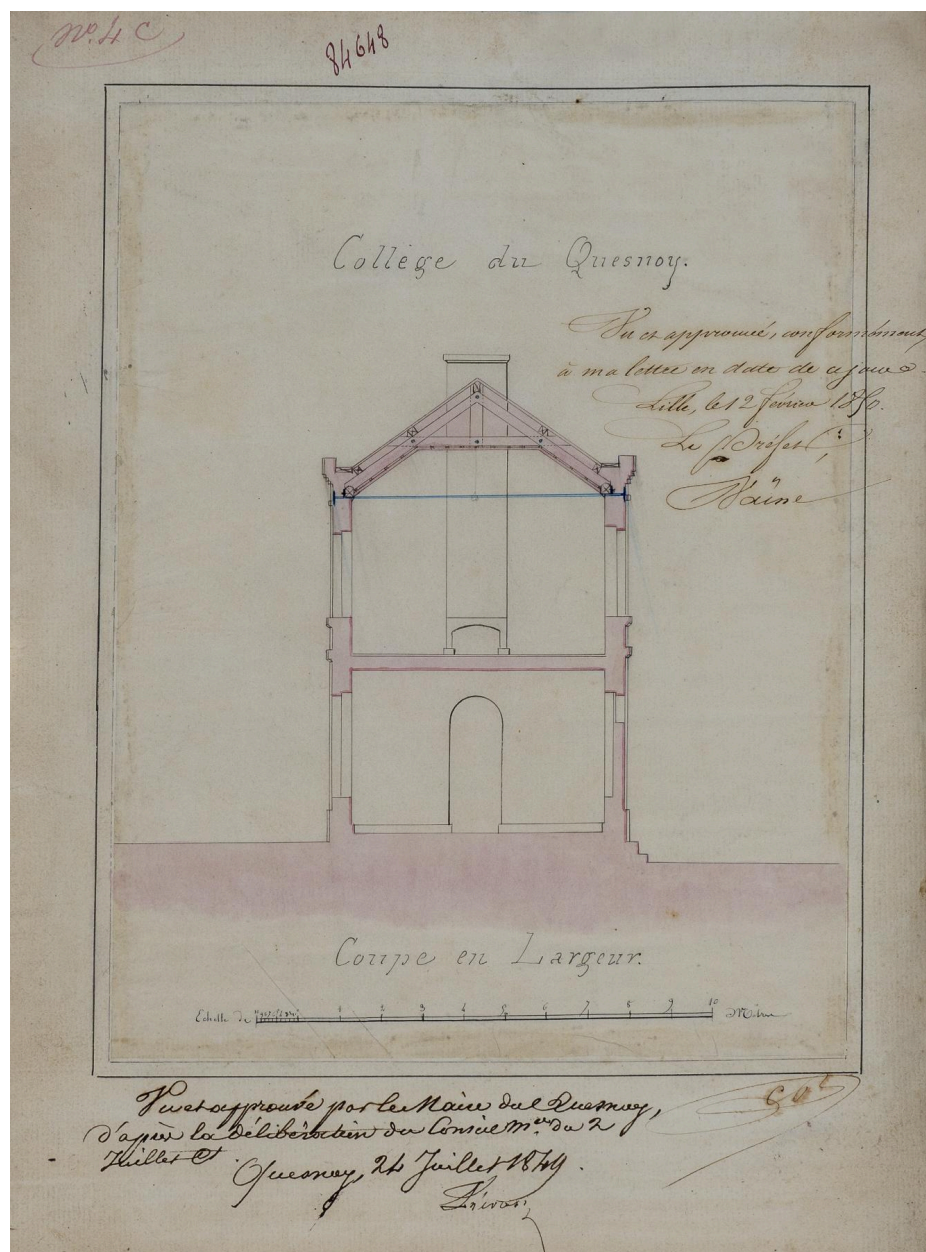 No. 4 C
84648
Collège du Quesnoy.
Vu et approuvé, conformément,
à ma lettre en date de ce jour
Lille, le 12 février 1850.
Le Préfet,
Coupe en Largeur.
Echelle de 1 2 3 4 5 6 7 8 9 10 Mètres
Vu et approuvé par le Maire du Quesnoy,
d'après la délibération du Conseil mal du 2
Juillet Ct.
Quesnoy, 24 Juillet 1849.